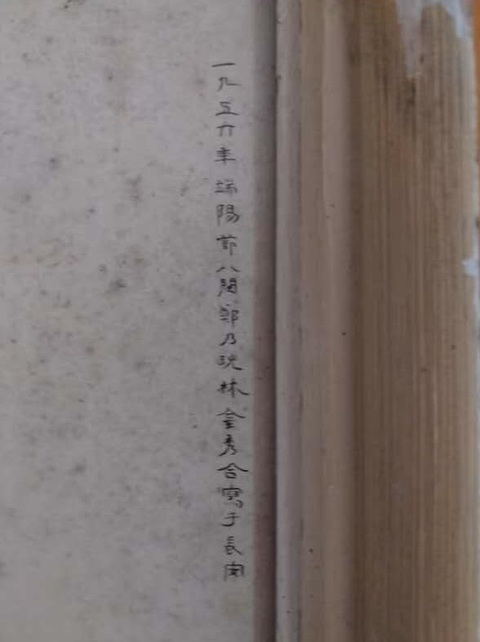 一九五六年端陽節八閩鄭乃珖林金秀合寫于長安